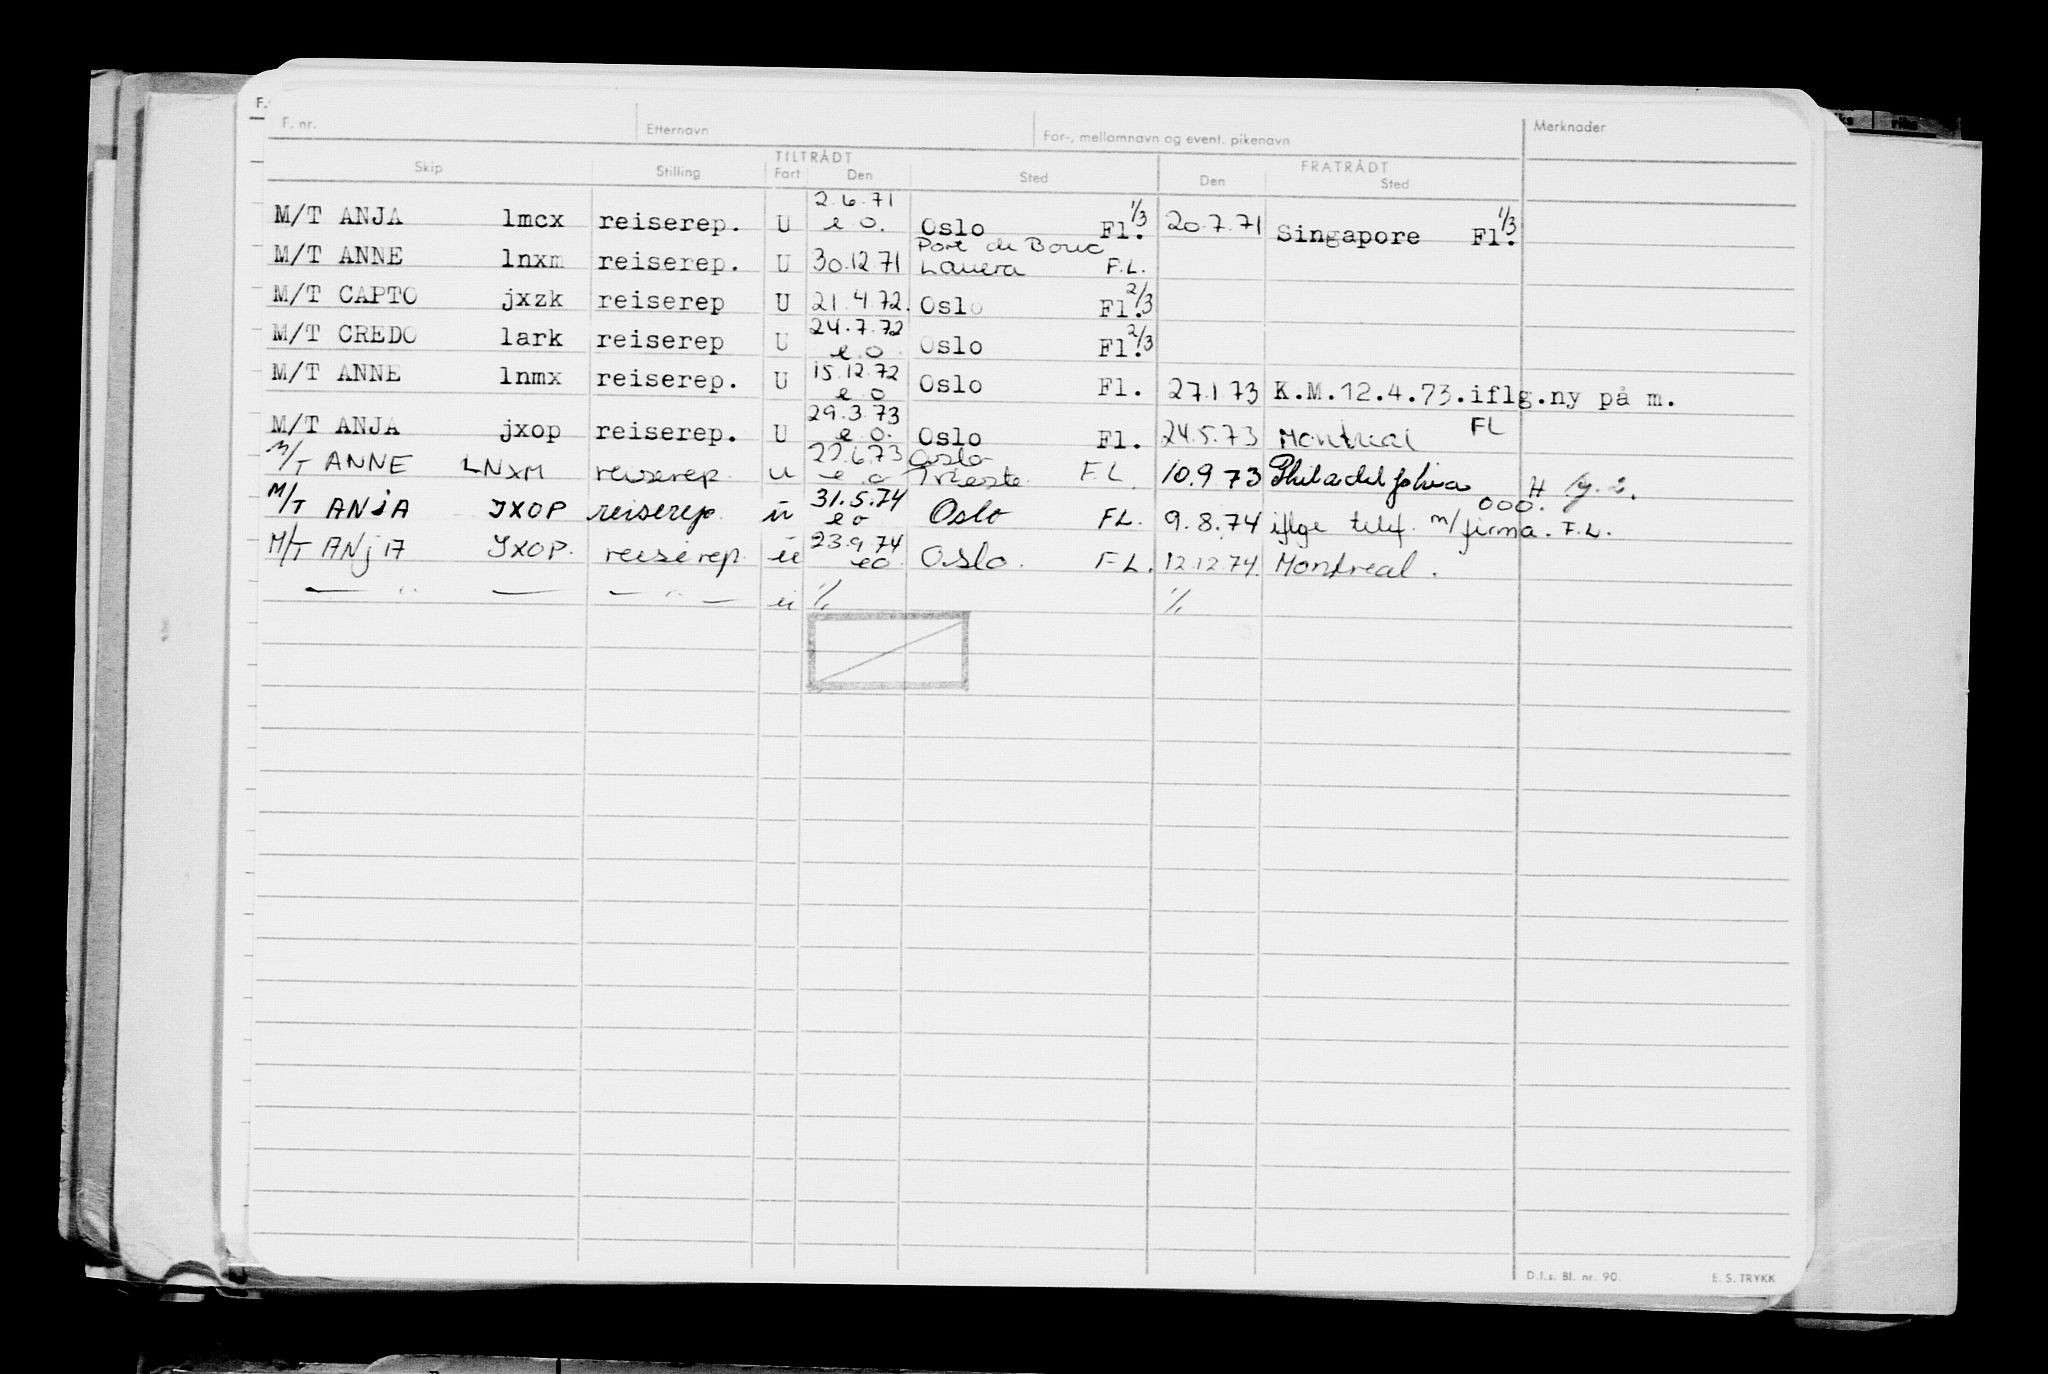 F. nr. Etternavn For-, mellomnavn og event. pikenavn Merknader
TILTRÅDT FRATRÅDT
Skip Stilling Fart Den Sted Den Sted
2.6.71
M/T ANJA lmcx reiserep. U e.o. Oslo Fl. 1/3 20.7.71 Singapore Fl. 1/3
Port de Bouc
M/T ANNE lnxm reiserep. U 30.12.71 Lavera F.L.
M/T CAPTO jxzk reiserep U 21.4.72. Oslo Fl. 2/3
24.7.72
M/T CREDO lark reiserep U e.o. Oslo Fl. 2/3
15.12.72
M/T ANNE lnmx reiserep. U e.o Oslo Fl. 27.1.73 K.M.12.4.73.iflg.ny på m.
29.3.73
M/T ANJA jxop reiserep. U e.o. Oslo Fl. 24.5.73 Montreal FL
22.6.73 Oslo
M/T ANNE LNXM reiserep. u e.o Trieste. F.L. 10.9.73 Philadelphia H
31.5.74 000.
M/T ANJA JXOP reiserep. u eo Oslo FL. 9.8.74 iflge telef. m/firma. F.L.
23.9.74
M/T ANJA JXOP. reiserep. u eo. Oslo. F.L. 12.12.74. Montreal.
— " — — " — u % %
D.f.s. Bl. nr. 90. E. S. TRYKK